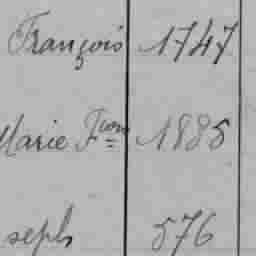 François 1747
Marie Fçois 1885
seph 576